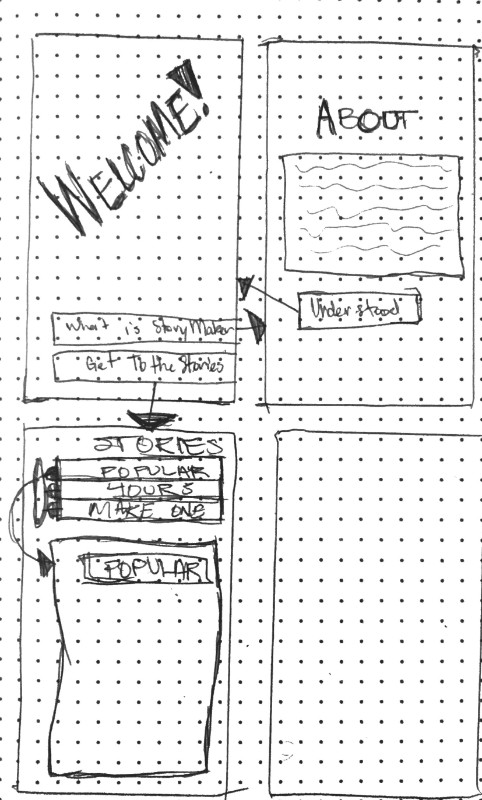 WELCOME!
What is StoryMaker
Get To the Stories
ABOUT
Understood
STORIES
POPULAR
YOURS
MAKE ONE
POPULAR